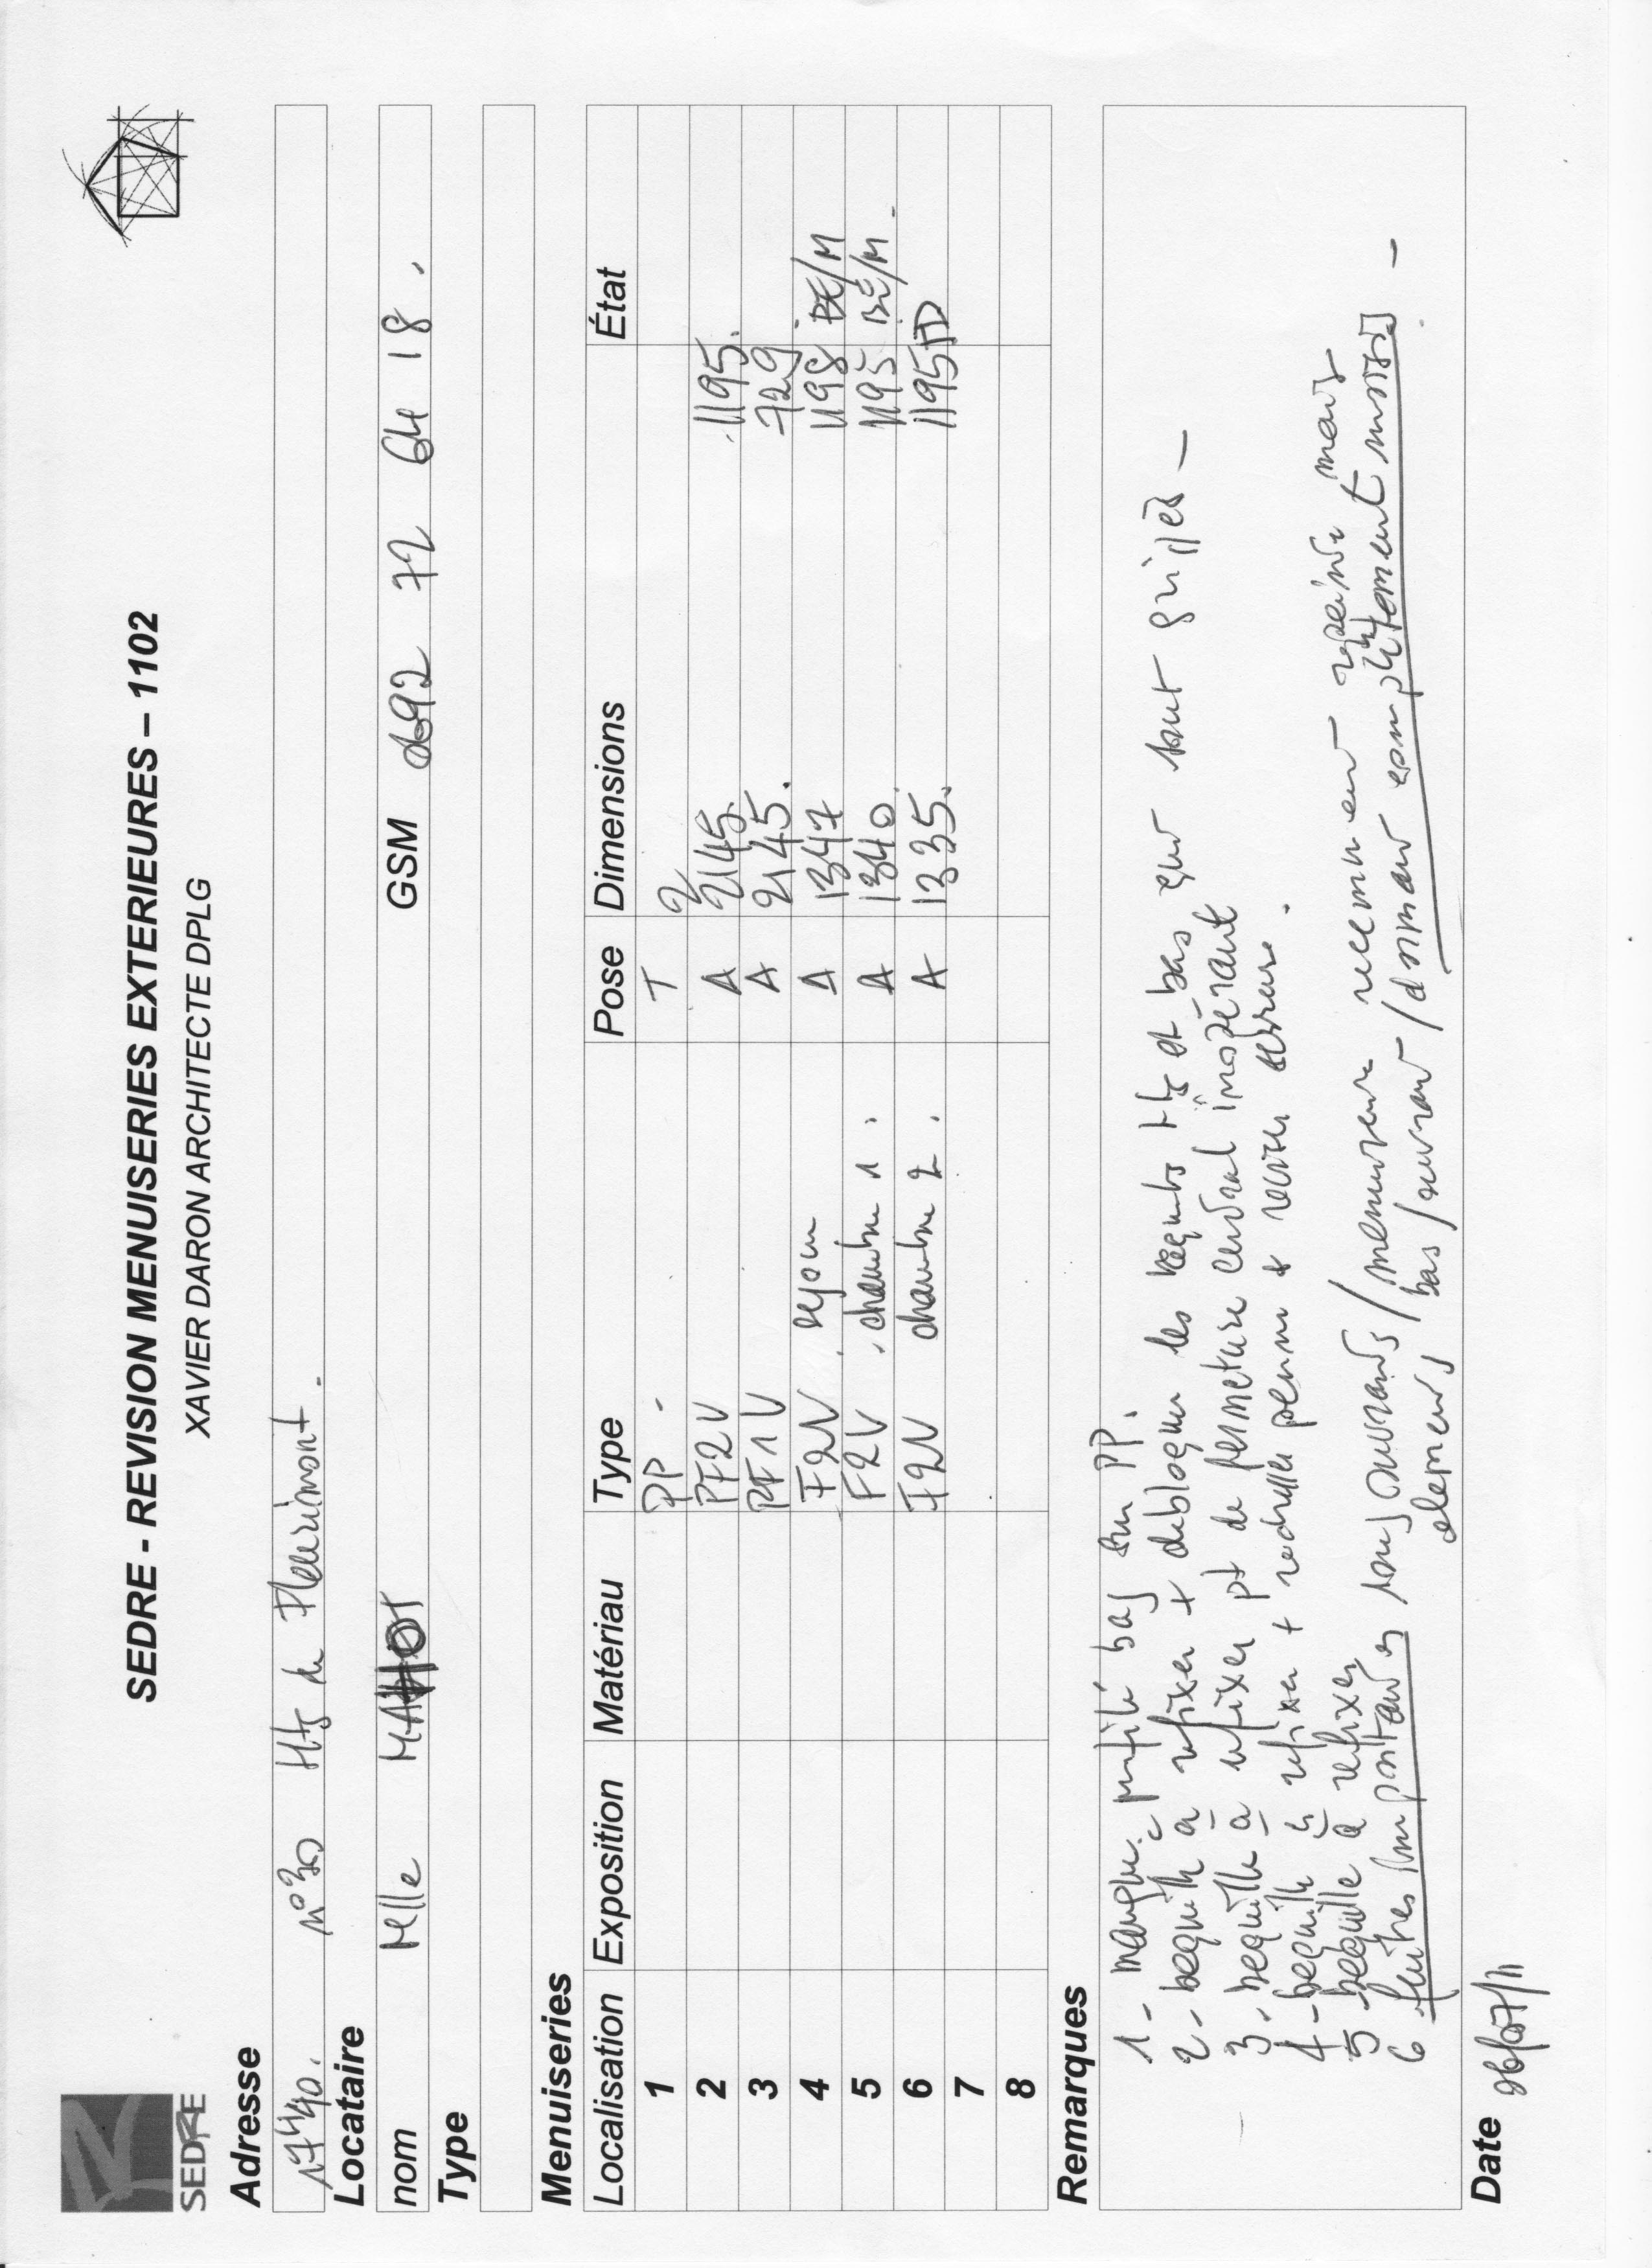 SEDRE
SEDRE - REVISION MENUISERIES EXTERIEURES – 1102
XAVIER DARON ARCHITECTE DPLG
Adresse
n°30 Hts de Fleurimont.
Locataire
nom Mlle GSM 0692 72 64 18.
Type
Menuiseries
Localisation Exposition Matériau Type Pose Dimensions État
1 PP - T
2 PF2V A 2145. 1195.
3 PF1V A 2145. 729
4 F2V sejour A 1347 1198 BE/M
5 F2V chambre 1. A 1340. 1195 BE/M
6 F2V chambre 2. A 1335. 1195
7
8
Remarques
1 - manque profilé bas sur PP.
2 - bequille à refixer + debloquer les hts et bas qui sont grippés -
3 - bequille à refixer pt de fermeture central inopérant
4 - bequille à refixer + + serrure.
5 - bequille à refixer
6 fuites importantes sous ouvrants / menuiserie mais
elements bas / ouvrant / dormant complètement
Date 26/07/11